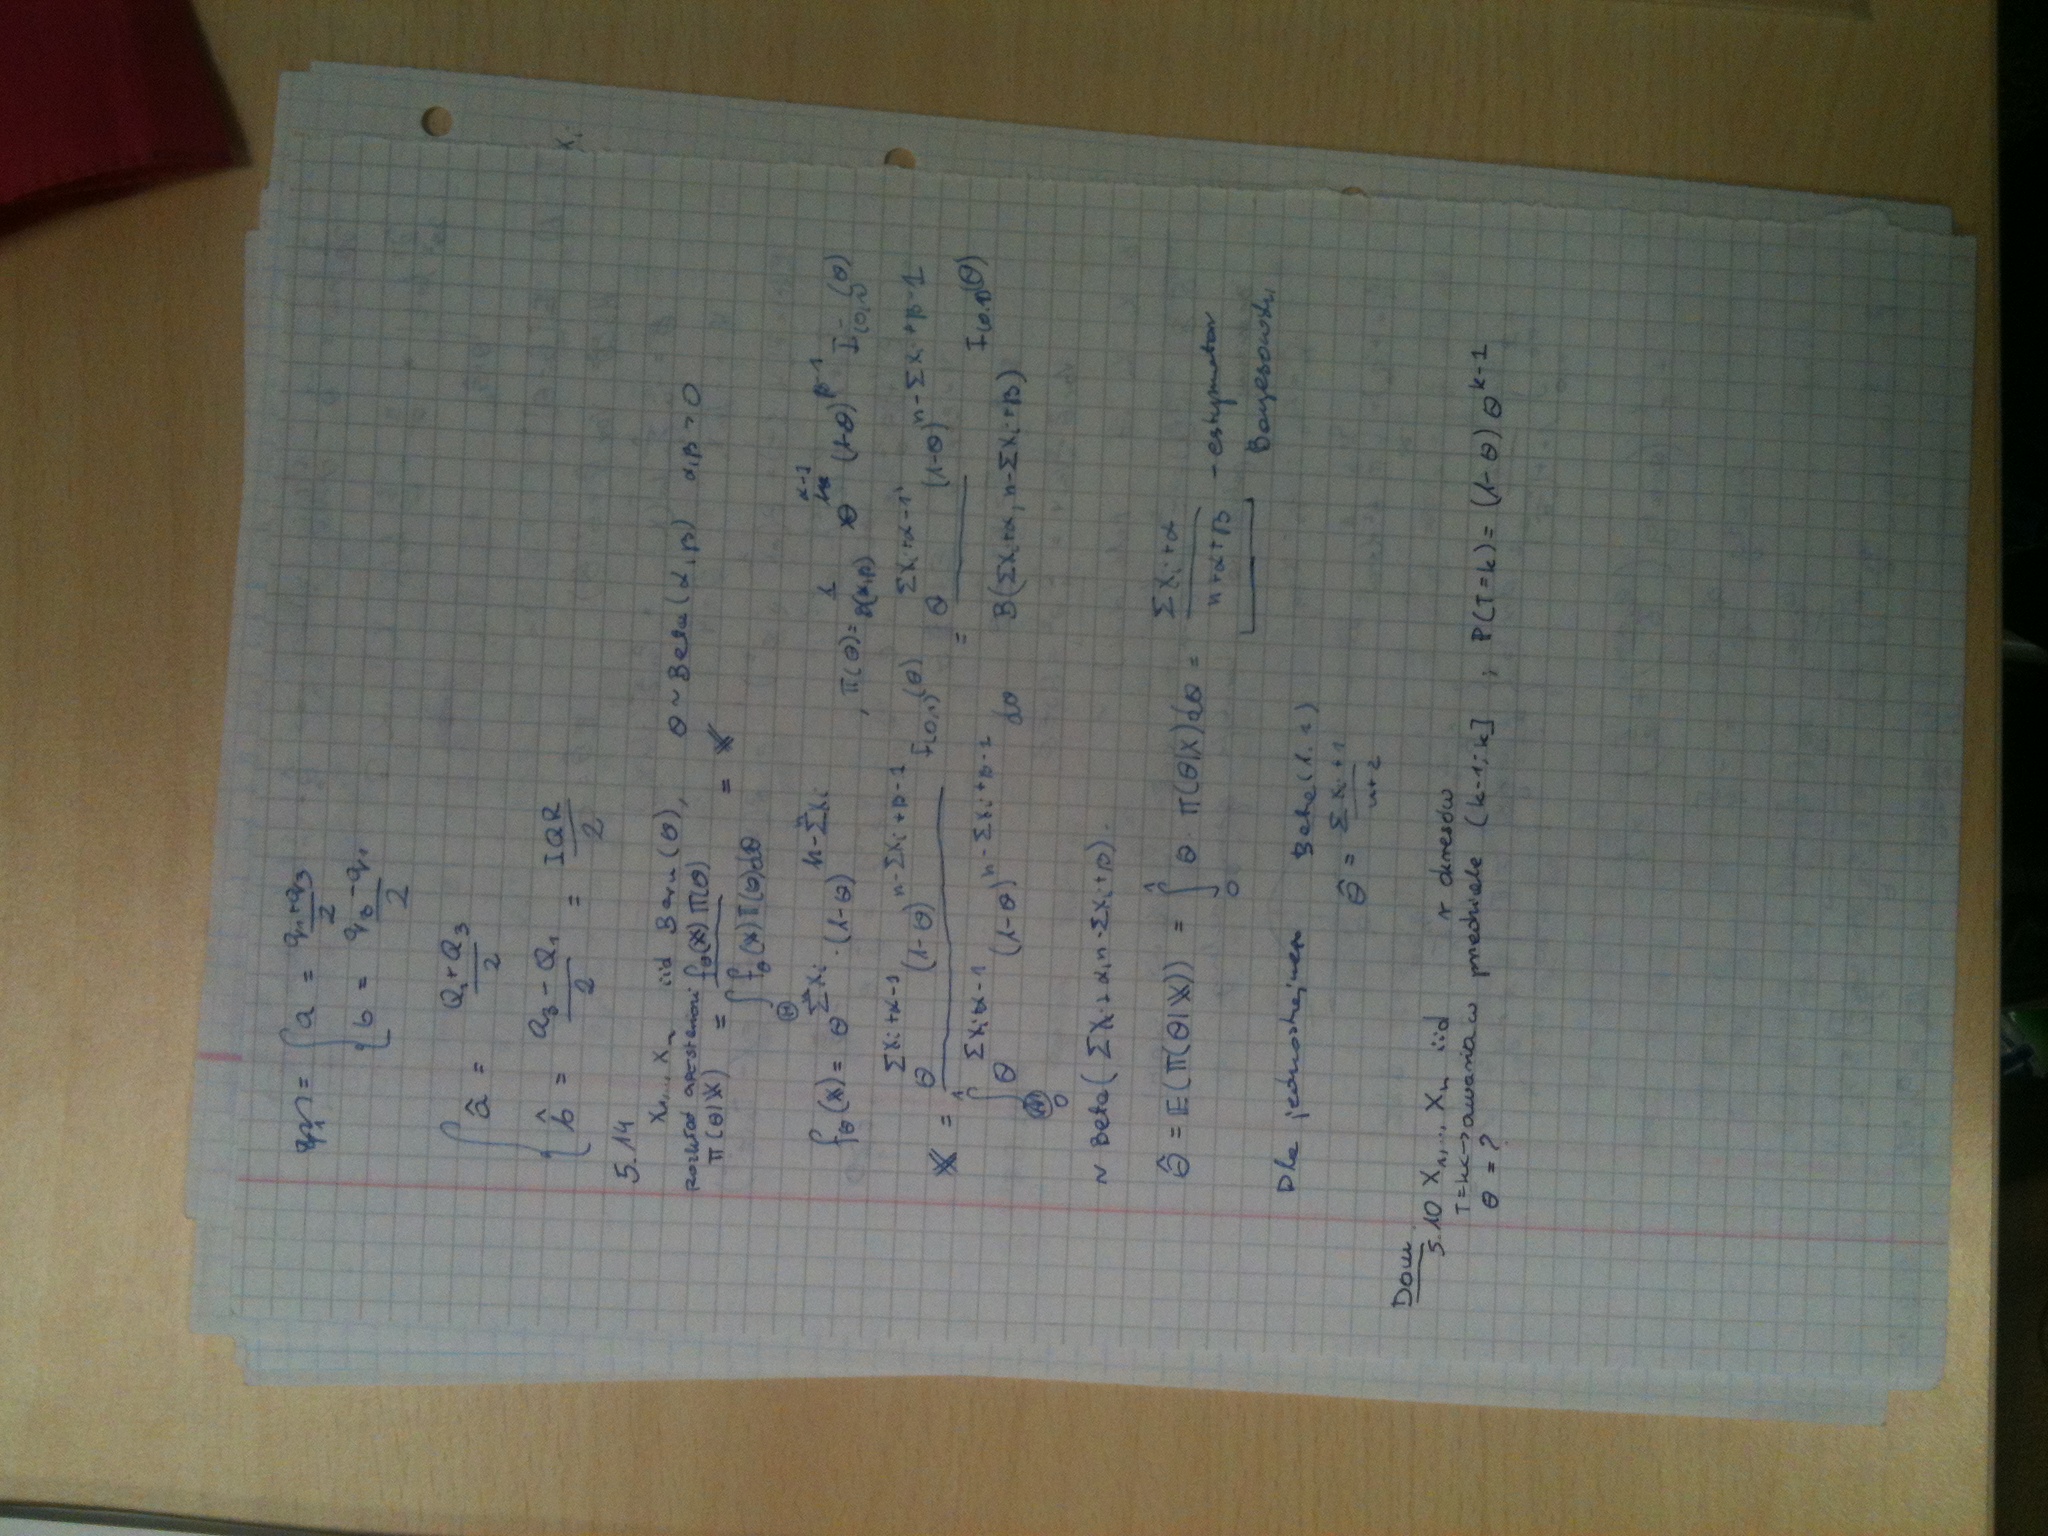 = { a = (q₁+q₃)/2
b = (q₃-q₁)/2
{ â = (Q₁+Q₃)/2
b̂ = (Q₃-Q₁)/2 = IQR/2
5.14
X₁,... Xₙ iid Bern(θ), θ ~ Beta(α,β) α,β > 0
rozkład aposteriori
π(θ|X) = f_θ(X) π(θ) / ∫_Θ f_θ(X) π(θ)dθ = *
f_θ(X) = θ^{Σxᵢ} · (1-θ)^{n-Σxᵢ} , π(θ) = 1/B(α,β) θ^{α-1} (1-θ)^{β-1} I_{(0,1)}(θ)
* = θ^{Σxᵢ+α-1} (1-θ)^{n-Σxᵢ+β-1} I_{(0,1)}(θ) / ∫₀¹ θ^{Σxᵢ+α-1} (1-θ)^{n-Σxᵢ+β-1} dθ = θ^{Σxᵢ+α-1} (1-θ)^{n-Σxᵢ+β-1} / B(Σxᵢ+α, n-Σxᵢ+β) I_{(0,1)}(θ)
~ Beta(Σxᵢ+α, n-Σxᵢ+β).
θ̂ = E(π(θ|X)) = ∫₀¹ θ π(θ|X)dθ = (Σxᵢ+α)/(n+α+β) - estymator
Bayesowski
Dla jednostajnego Beta(1,1)
θ̂ = (Σxᵢ+1)/(n+2)
Dom
5.10 X₁,... Xₙ iid r okresów
T=k → awaria w przedziale (k-1; k] ; P(T=k) = (1-θ) θ^{k-1}
θ = ?
Xᵢ